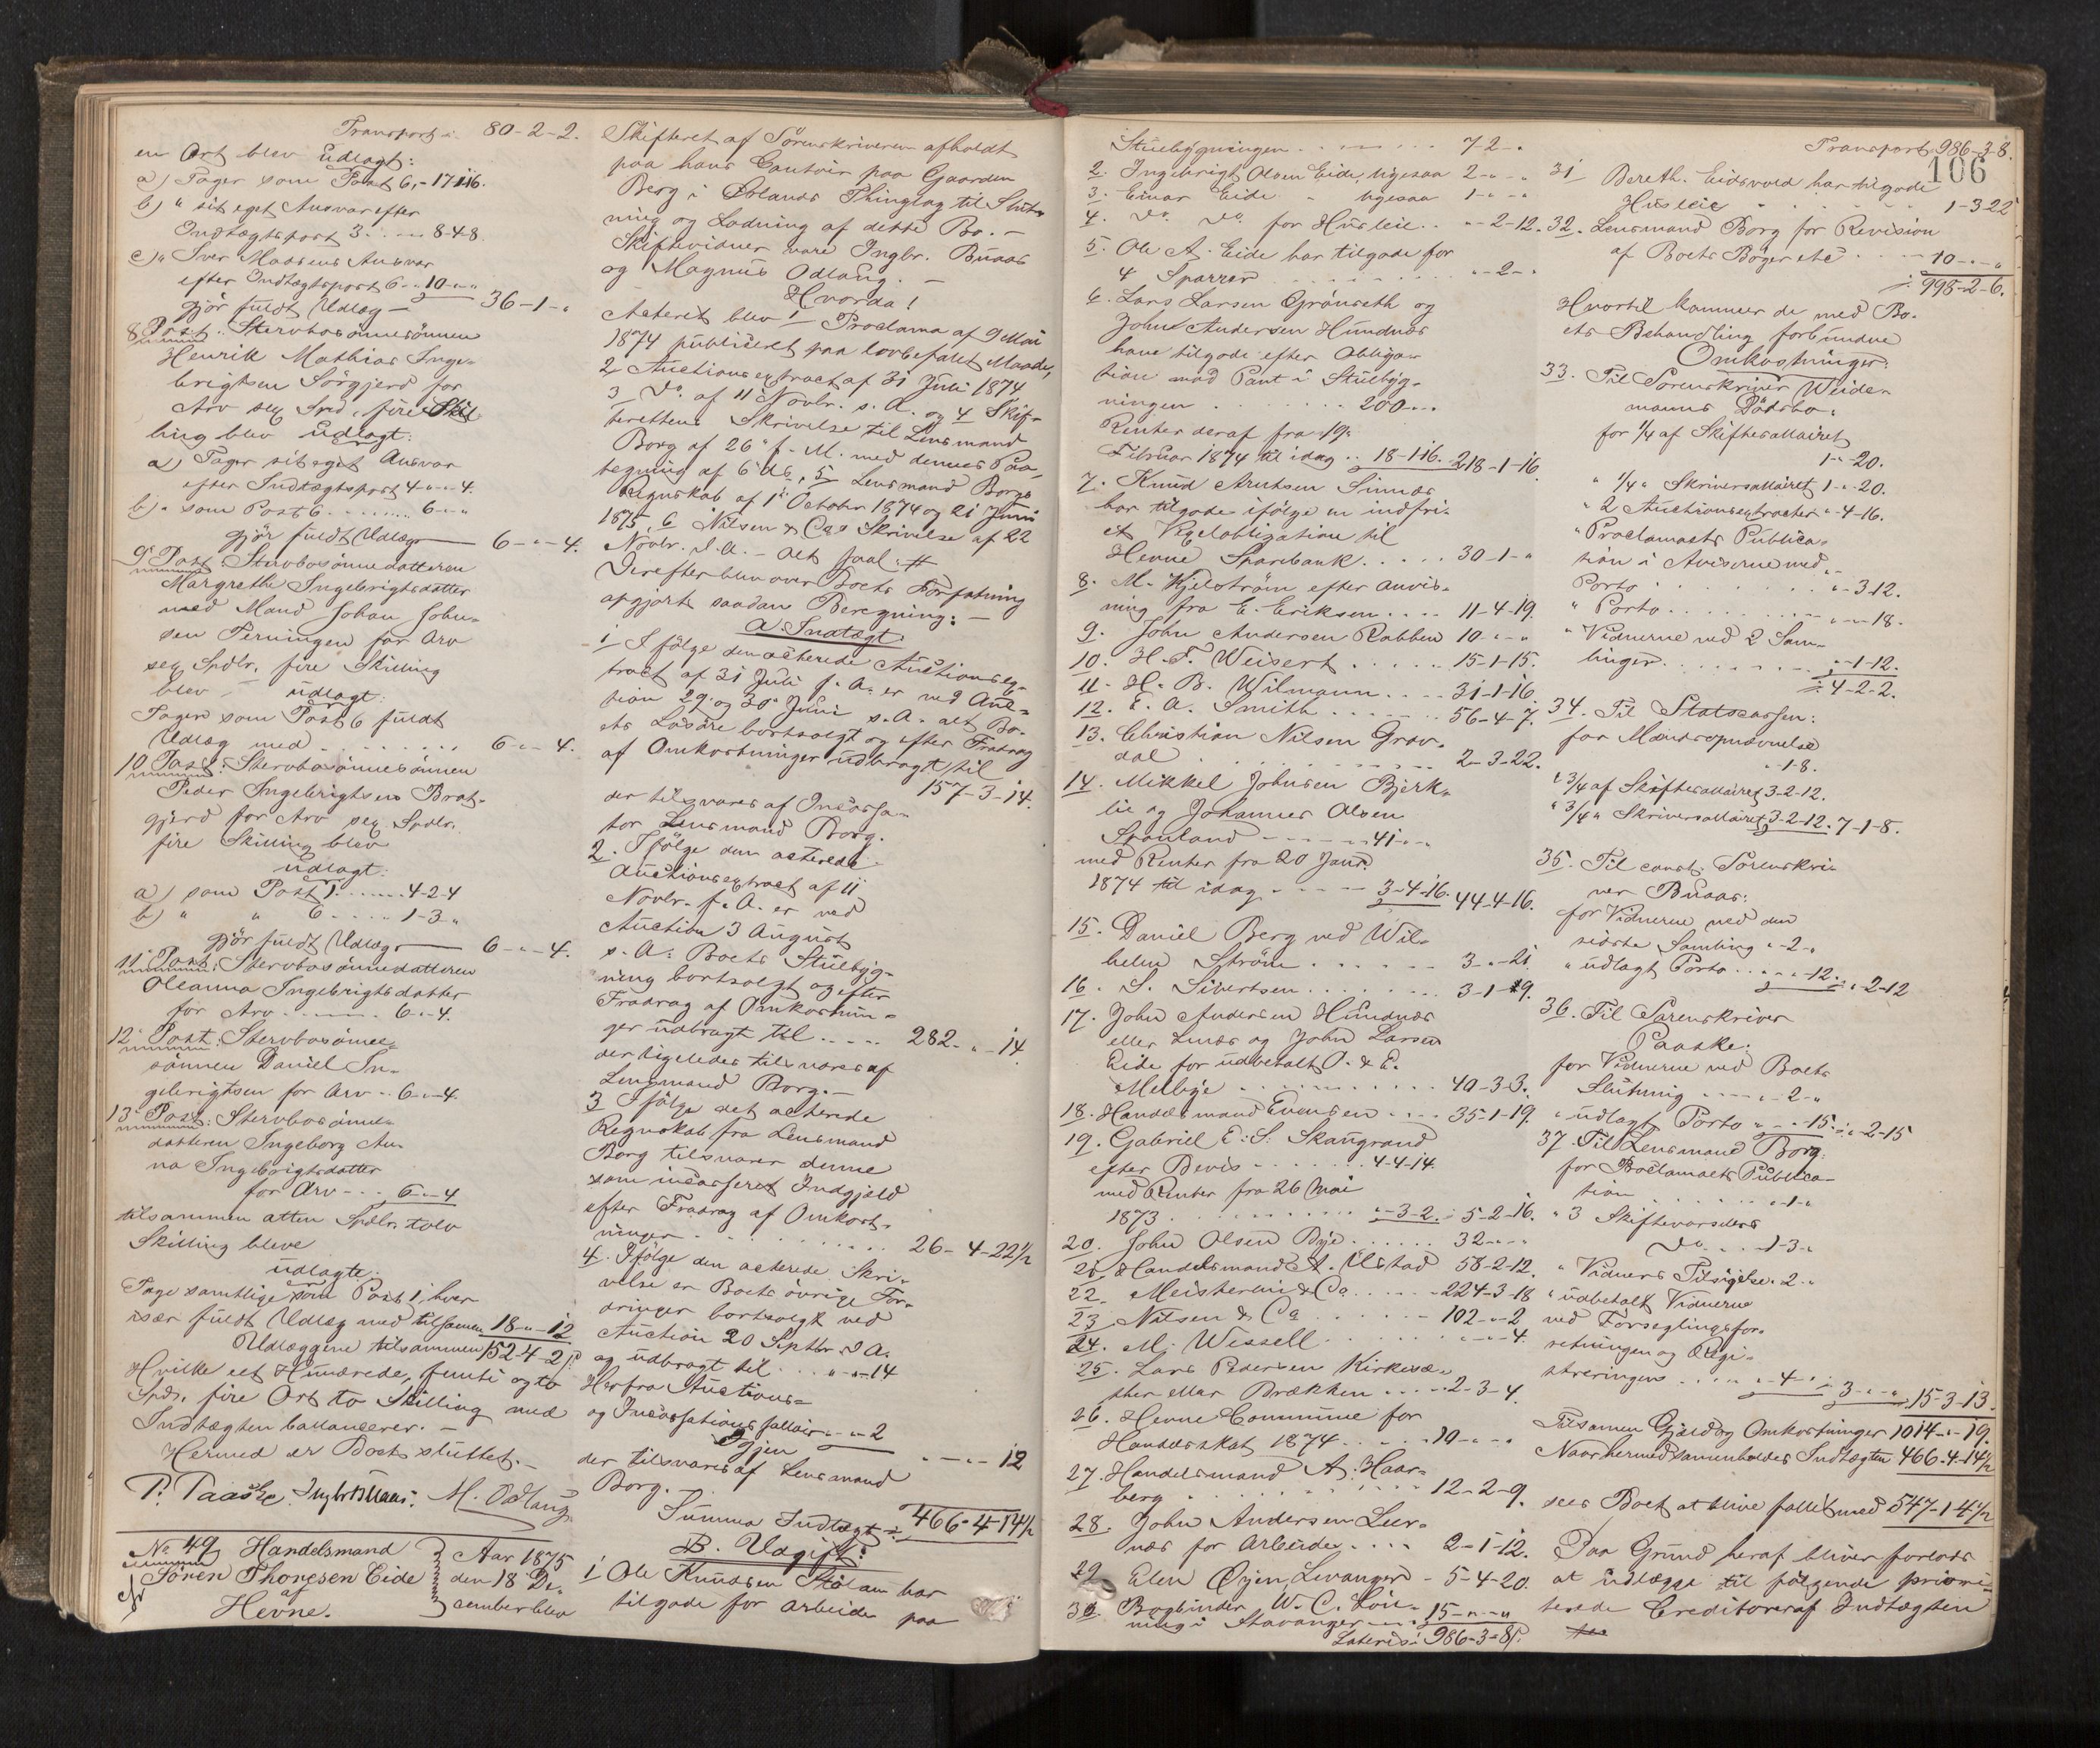 Transport ∴ 80-2-2.
en Ort blev udlagt:
a) Tager som Post 6, - 17-1-16.
b) " sit eget Ansvar efter
Indtægtspost 3. . . . 8-4-8.
c) " Iver Madsens Ansvar
efter Indtægtspost 6 . . 10-"-"
gjør fuldt Udlæg — 36-1-"
8 Post: Stervbosønnesønnen
Henrik Mathias Inge-
brigtsen Sørgjerd for
Arv sex Spd. fire Skil-
ling blev udlagt:
a) Tager sit eget Ansvar
efter Indtægtspost 4-"-4.
b) " som Post 6 . . . . . . 6-"-"
gjør fuldt Udlæg — 6-"-4.
9 Post: Stervbosønnedatteren
Margrethe Ingebrigtsdatter
med Mand Johan John-
sen Terningen for Arv
sex Spdlr. fire Skilling
blev udlagt:
Tager som Post 6 fuldt
Udlæg med . . . . . . . 6-"-4.
10 Post: Stervbosønnesønnen
Peder Ingebrigtsen Brat-
gjerd for Arv sex Spdlr.
fire Skilling blev
udlagt:
a) som Post 1 . . . . . 4-2-4
b) " " 6 . . . . 1-3-"
gjør fuldt Udlæg — 6-"-4.
11 Post: Stervbosønnedatteren
Oleanna Ingebrigtsdatter
for Arv . . . . . 6-"-4.
12 Post: Stervbosønne-
sønnen Daniel In-
gebrigtsen for Arv . . 6-"-4.
13 Post: Stervbosønne-
datteren Ingeborg An-
na Ingebrigtsdatter
for Arv . . . 6-"-4
tilsammen atten Spdlr. tolv
Skilling bleve
udlagte:
Tage samtlige som Post 1, hver
især fuldt Udlæg med tilsamen 18-"-12
Udlæggene tilsammen 152-4-2 ß.
Hvilke eet Hundrede, femti og to
Spd. fire Ort to Skilling med
Indtægten ballancerer. -
Hermed er Boet sluttet. -
P. Paaske. Ingbr. Buaas. M. Odlaug
No 49 Handelsmand
Sören Thoresen Eide
af
Hevne.
Aar 1875
den 18 De-
cember blev
Skifteret af Sorenskriveren afholdt
paa hans Contoir paa Gaarden
Berg i Ørlands Thinglag til Slut-
ning og Lodning af dette Bo. -
Skiftevidner vare Ingbr. Buaas
og Magnus Odlaug. -
Hvorda!
Acteret blev 1 Proclama af 9 Mai
1874 publiceret paa lovbefalet Maade,
2 Auctionsextract af 31 Juli 1874
3 Do. af 11 Novbr. s. A. og 4 Skif-
terettens Skrivelse til Lensmand
Borg af 26 f. M. med dennes Paa-
tegning af 6 ds, 5 Lensmand Borgs
Regnskab af 1ste October 1874 og 21 Juni
1875, 6 Nilsen & Cos Skrivelse af 22
Novbr. d. A. - alt saal. #
Derefter blev over Boets Forfatning
opgjort saadan Beregning: -
A. Indtægt:
1 Ifølge den acterede Auctionsex-
tract af 31 Juli f. A. er ved Auc-
tion 29 og 30 Juni s. A. alt Bo-
ets Løsøre bortsolgt og efter Fradrag
af Omkostninger udbragt til
157-3-14.
der tilsvares af Incassa-
tor Lensmand Borg.
2. Ifølge den acterede
Auctionsextract af 11
Novbr. f. A. er ved
Auction 3 August
s. A. Boets Stuebyg-
ning bortsolgt og efter
Fradrag af Omkostnin-
ger udbragt til . . . . 282-"-14.
der ligeledes tilsvares af
Lensmand Borg. -
3 Ifølge det acterede
Regnskab fra Lensmand
Borg tilsvarer denne
som incasseret Indgjeld
efter Fradrag af Omkost-
ninger . . . . . . . . 26-4-22½
4. Ifølge den acterede Skri-
velse er Boets øvrige For-
dringer bortsolgt ved
Auction 20 Septbr. d. A.
og udbragt til . . . "-"-14
Herfra Auctions-
og Incassationssallair . "-"-2
Igjen "-"-12
der tilsvares af Lensmand
Borg. -
Summa Indtægt ∴ 466-4-14½
B. Udgift:
1 Ole Knudsen Skølam har
tilgode for Arbeide paa
106
Stuebygningen . . . . . . 72-"
2. Ingebrigt Olsen Eide, ligesaa 2-"-"
3. Einar Eide " ligesaa 1-"-"
4. Do. Do. for Husleie . . "-2-12.
5. Ole A. Eide har tilgode for
4 Sparrer . . . . . . . . "-2-"
6. Lars Larsen Grönseth og
John Andersen Hundnæs
have tilgode efter Obliga-
tion med Pant i Stuebyg-
ningen . . . . . . 200-"-"
Renter deraf fra 19
Februar 1874 til idag . . 18-1-16. 218-1-16
7. Knud Arntsen Sinnæs
har tilgode ifølge en indfri-
et Vexelobligation til
Hevne Sparebank . . . . 30-1-"
8. M. Hjelström efter Anvis-
ning fra E. Eriksen . . . . 11-4-19.
9. John Andersen Rabben 10-"-"
10. H. F. Weisert . . . . . 15-1-15.
11. H. B. Wilmann . . . . 31-1-16
12. E. A. Smith . . . . . . 56-4-7.
13. Christian Nilsen Grav-
dal . . . . . . . . . . 2-3-22.
14. Mikkel Johnsen Bjerk-
lie og Johannes Olsen
Spanland . . . . . 41-"-"
med Renter fra 20 Janr.
1874 til idag . . . . 3-4-16. 44-4-16.
15. Daniel Berg ved Wil-
helm Ström . . . . . . 3-"-21
16. S. Sivertsen . . . . . . 3-1-19.
17. John Andersen Hundnæs
eller Lenes og John Larsen
Eide for udbetalt O. & E.
Melbye . . . . . . . . 40-3-3.
18. Handelsmand Evensen . . . 35-1-19.
19. Gabriel E: S: Skaugrand
efter Bevis . . . . . . 4-4-14.
med Renter fra 26 Mai
1873 . . . . . . . . "-3-2. ∴ 5-2-16.
20. John Olsen Bye . . . . . . 32-"-"
21. Handelsmand A. Ulstad 58-2-12.
22. Meisterlin & Co . . . . . 224-3-18
23. Nilsen & Co . . . . . . 102-"-2
24. M. Wessell . . . . . . "-"-4.
25. Lars Pedersen Kirkesæ-
ther eller Brækken . . . . . 2-3-4.
26. Hevne Commune for
Handelsskat 1874 . . . . 10-"-"
27. Handelsmand A. Haar-
berg . . . . . . . . . . 12-2-9.
28. John Andersen Leer-
næs for Arbeide . . . . 2-1-12.
29. Elen Öyen, Levanger - 5-4-20.
30. Bogbinder W. C. Lön-
ning i Stavanger . . . . 15-"-"
Lateris: 986-3-8 ß.
Transport 986-3-8.
31 Bereth. Eidsvold har tilgode
Husleie . . . . . . . 1-3-22
32. Lensmand Borg for Revision
af Boets Bøger etc . . . . 10-"-"
∴ 998-2-6.
Hvortil kommer de med Bo-
ets Behandling forbundne
Omkostninger:
33. Til Sorenskriver Weide-
manns Dödsbo:
for ¼ af Skiftesallairet
1-"-20.
" ¼ " Skriversallairet 1-"-20.
" 2 Auctionsextracter "-4-16.
" Proclamaets Publica-
tion i Aviserne med
Porto . . . . . . . . "-3-12.
" Porto . . . . . . . . "-"-18.
" Vidnerne ved 2 Sam-
linger . . . . . . . "-1-12.
∴ 4-2-2.
34. Til Statscassen:
for Mandsopnævnelse
"-1-8.
" ¾ af Skiftesallairet 3-2-12.
" ¾ " Skriversallairet 3-2-12. 7-1-8.
35. Til const. Sorenskri-
ver Buaas:
for Vidnerne ved den
sidste Samling "-2-"
" udlagt Porto . . "-"-12. ∴ "-2-12
36. Til Sorenskriver
Paaske:
for Vidnerne ved Boets
Slutning . . . . "-2-"
" udlagt Porto "-"-15. ∴ "-2-15
37. Til Lensmand Borg:
for Proclamaets Publica-
tion . . . . . . . "-1-"
" 3 Skiftevarslers
Do. . . . "-1-3-"
" Vidners Tilsigelse "-2-"
" udbetalt Vidnerne
ved Forseglingsfor-
retningen og Regi-
streringen . . . . "-4-" ∴ 3-"-" 15-3-13.
Tilsamen Gjæld og Omkostninger 1014-"-19.
Naar hermed samenholdes Indtægten 466-4-14½
sees Boet at blive fallit med 547-1-4½
Paa Grund heraf bliver forlods
at udlægge til følgende priori-
terede Creditorer af Indtægten